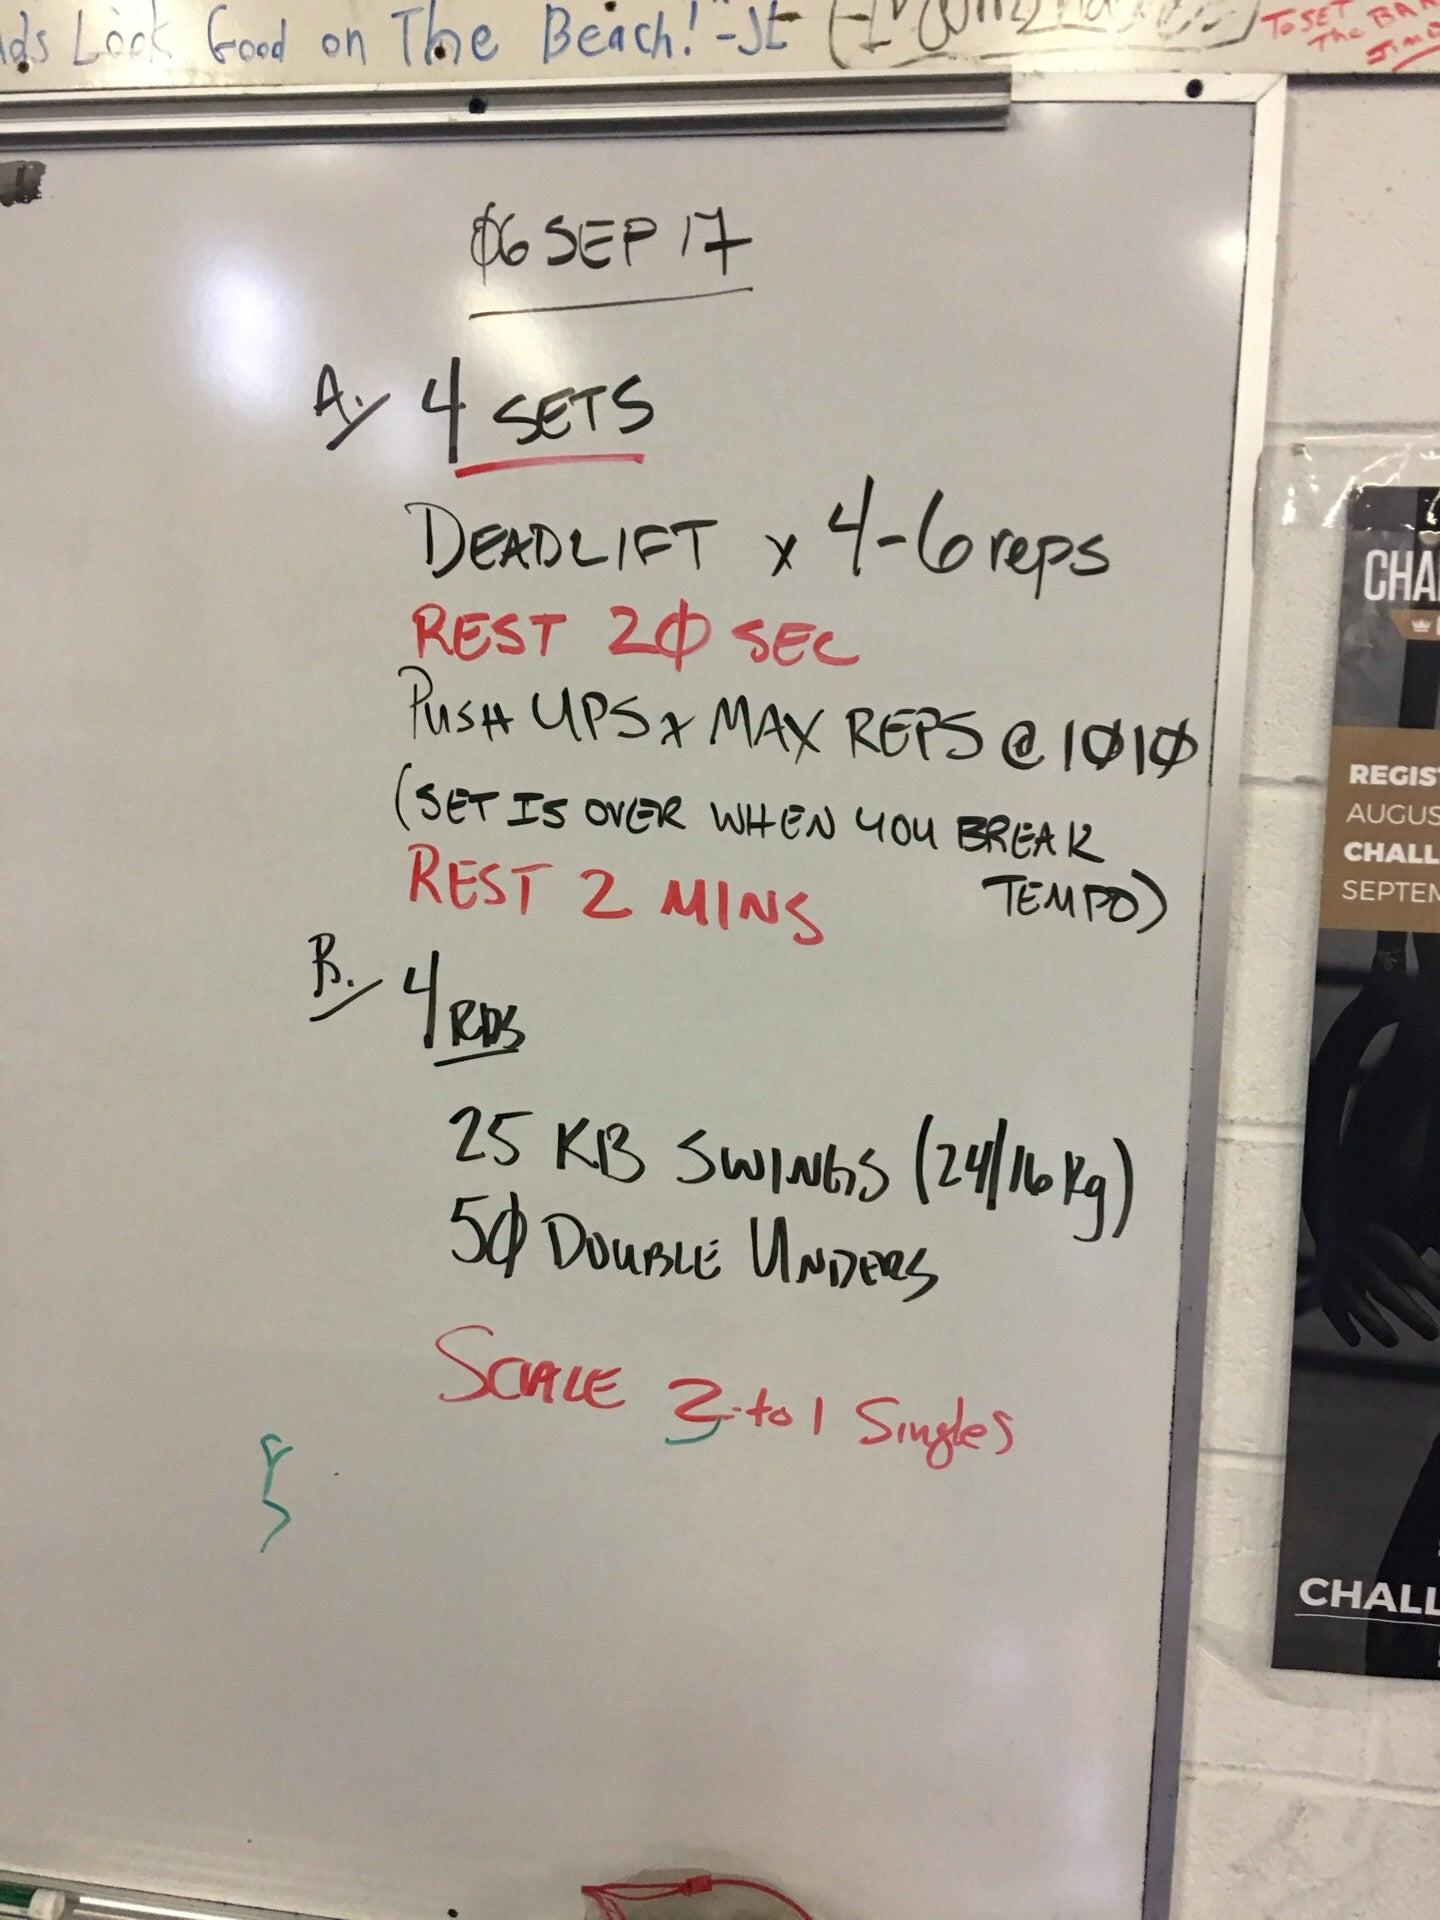 Look Good on The Beach!"-JL
To SET
The BAR
06 SEP 17
A. 4 SETS
DEADLIFT x 4-6 reps
REST 20 SEC
PUSH UPS x MAX REPS @ 1010
(SET IS OVER WHEN YOU BREAK
TEMPO)
REST 2 MINS
B. 4 RDS
25 KB SWINGS (24/16 Kg)
50 DOUBLE UNDERS
SCALE 3-to 1 Singles
CHA
REGIS
AUGUS
CHALL
SEPTEM
CHALL